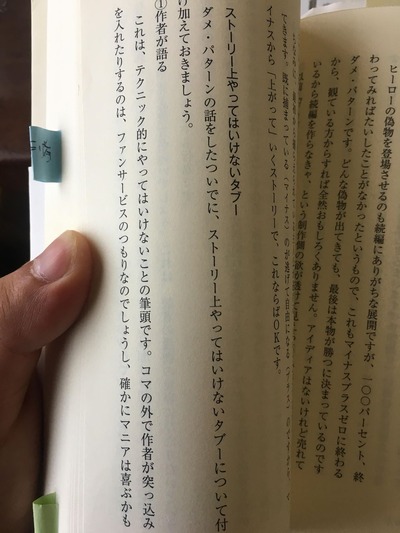 ヒーローの偽物を登場させるのも続編にありがちな展開ですが、一〇〇パーセント、終
わってみればたいしたことがなかったというもので、これもマイナスプラスゼロに終わる
ダメ・パターンです。どんな偽物が出てきても、最後は本物が勝つに決まっているのです
から、観ている方からすれば全然おもしろくありません。アイディアはないけれど売れて
いるから続編を作らなきゃ、という制作側の欲が透けて見え
できます。既に捕まっている（マイナス）のが逃げて自由になる
イナスから「上がって」いくストーリーで、これならばOKです。
ストーリー上やってはいけないタブー
ダメ・パターンの話をしたついでに、ストーリー上やってはいけないタブーについて付
け加えておきましょう。
①作者が語る
これは、テクニック的にやってはいけないことの筆頭です。コマの外で作者が突っ込み
を入れたりするのは、ファンサービスのつもりなのでしょうし、確かにマニアは喜ぶかも